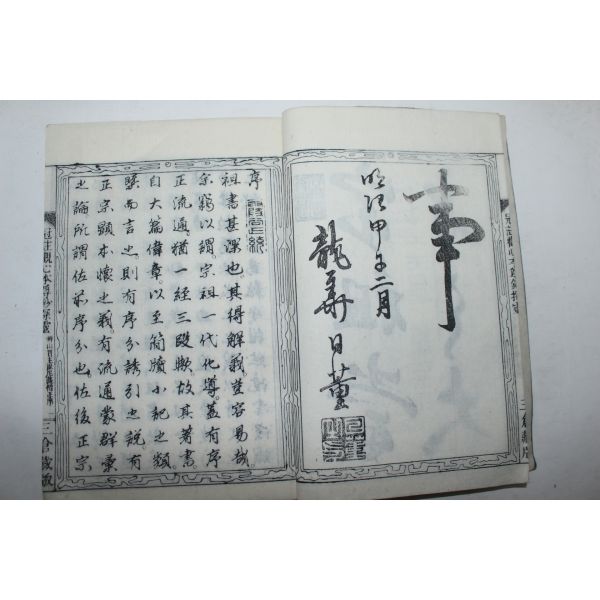 事
明治甲子二月
龍華日董
序
祖書甚深也其得解義豈容易哉
宗竊以謂宗祖一代化導蓋有序
正流通猶一經三段歟故其著書
自大篇偉章以至簡牘小記之類
總而言之則有序分誘引之說有
正宗顯本懷之義有流通蒙群彙
之論所謂佐前序分也佐後正宗
冠註觀心本尊鈔
三倉藏版